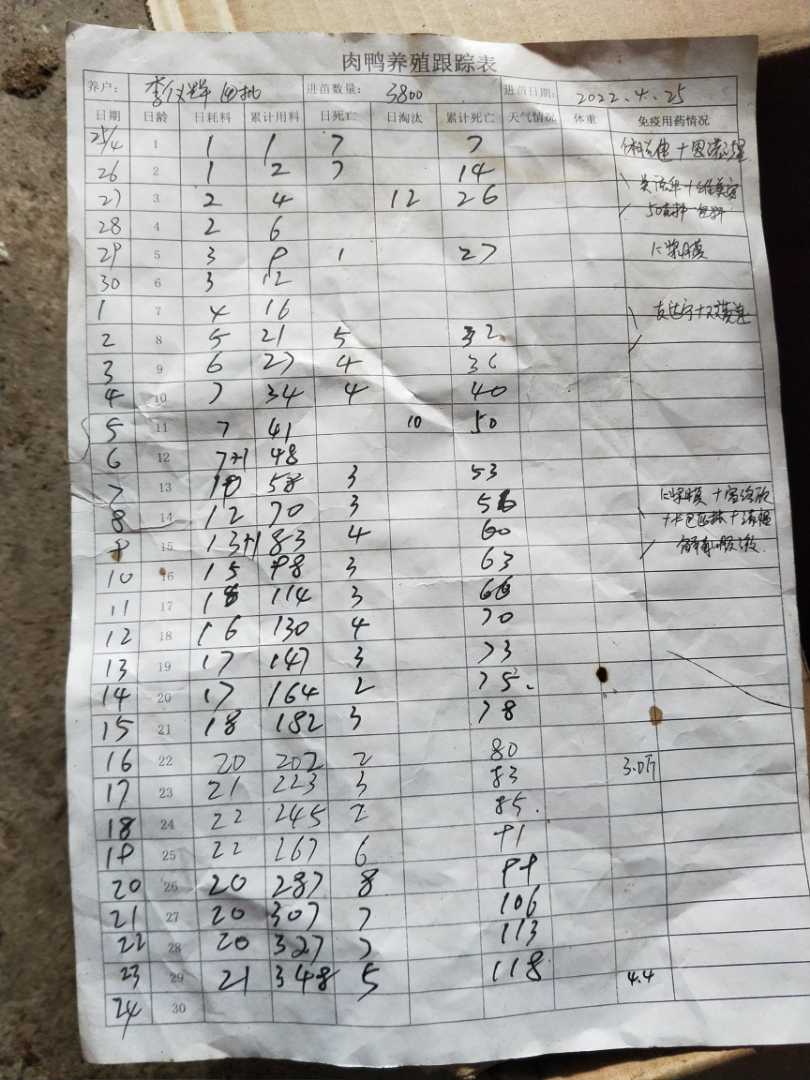 肉鸭养殖跟踪表
养户: 李 四批 进苗数量: 3800 进苗日期: 2022.4.25
日期 日龄 日耗料 累计用料 日死亡 日淘汰 累计死亡 天气情况 体重 免疫用药情况
25/4 1 1 1 7 7
26 2 1 2 7 14
27 3 2 4 12 26
28 4 2 6
29 5 3 9 1 27
30 6 3 12
1 7 4 16
2 8 5 21 5 32
3 9 6 27 4 36
4 10 7 34 4 40
5 11 7 41 10 50
6 12 7+1 48
7 13 10 58 3 53
8 14 12 70 3 56
9 15 13+1 83 4 60
10 16 15 98 3 63
11 17 16 114 3 66
12 18 16 130 4 70
13 19 17 147 3 73
14 20 17 164 2 75.
15 21 18 182 3 78
16 22 20 202 2 80
17 23 21 223 3 83 3.0斤
18 24 22 245 2 85.
19 25 22 267 6 91
20 26 20 287 8 99
21 27 20 307 7 106
22 28 20 327 7 113
23 29 21 348 5 118 4.4
24 30